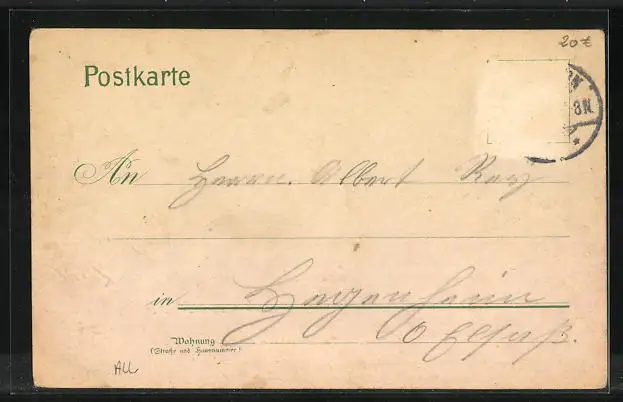 20€
Postkarte
8N.
An Herrn Albert
in Hegenheim
Wohnung O Elsaß.
(Straße und Hausnummer)
All